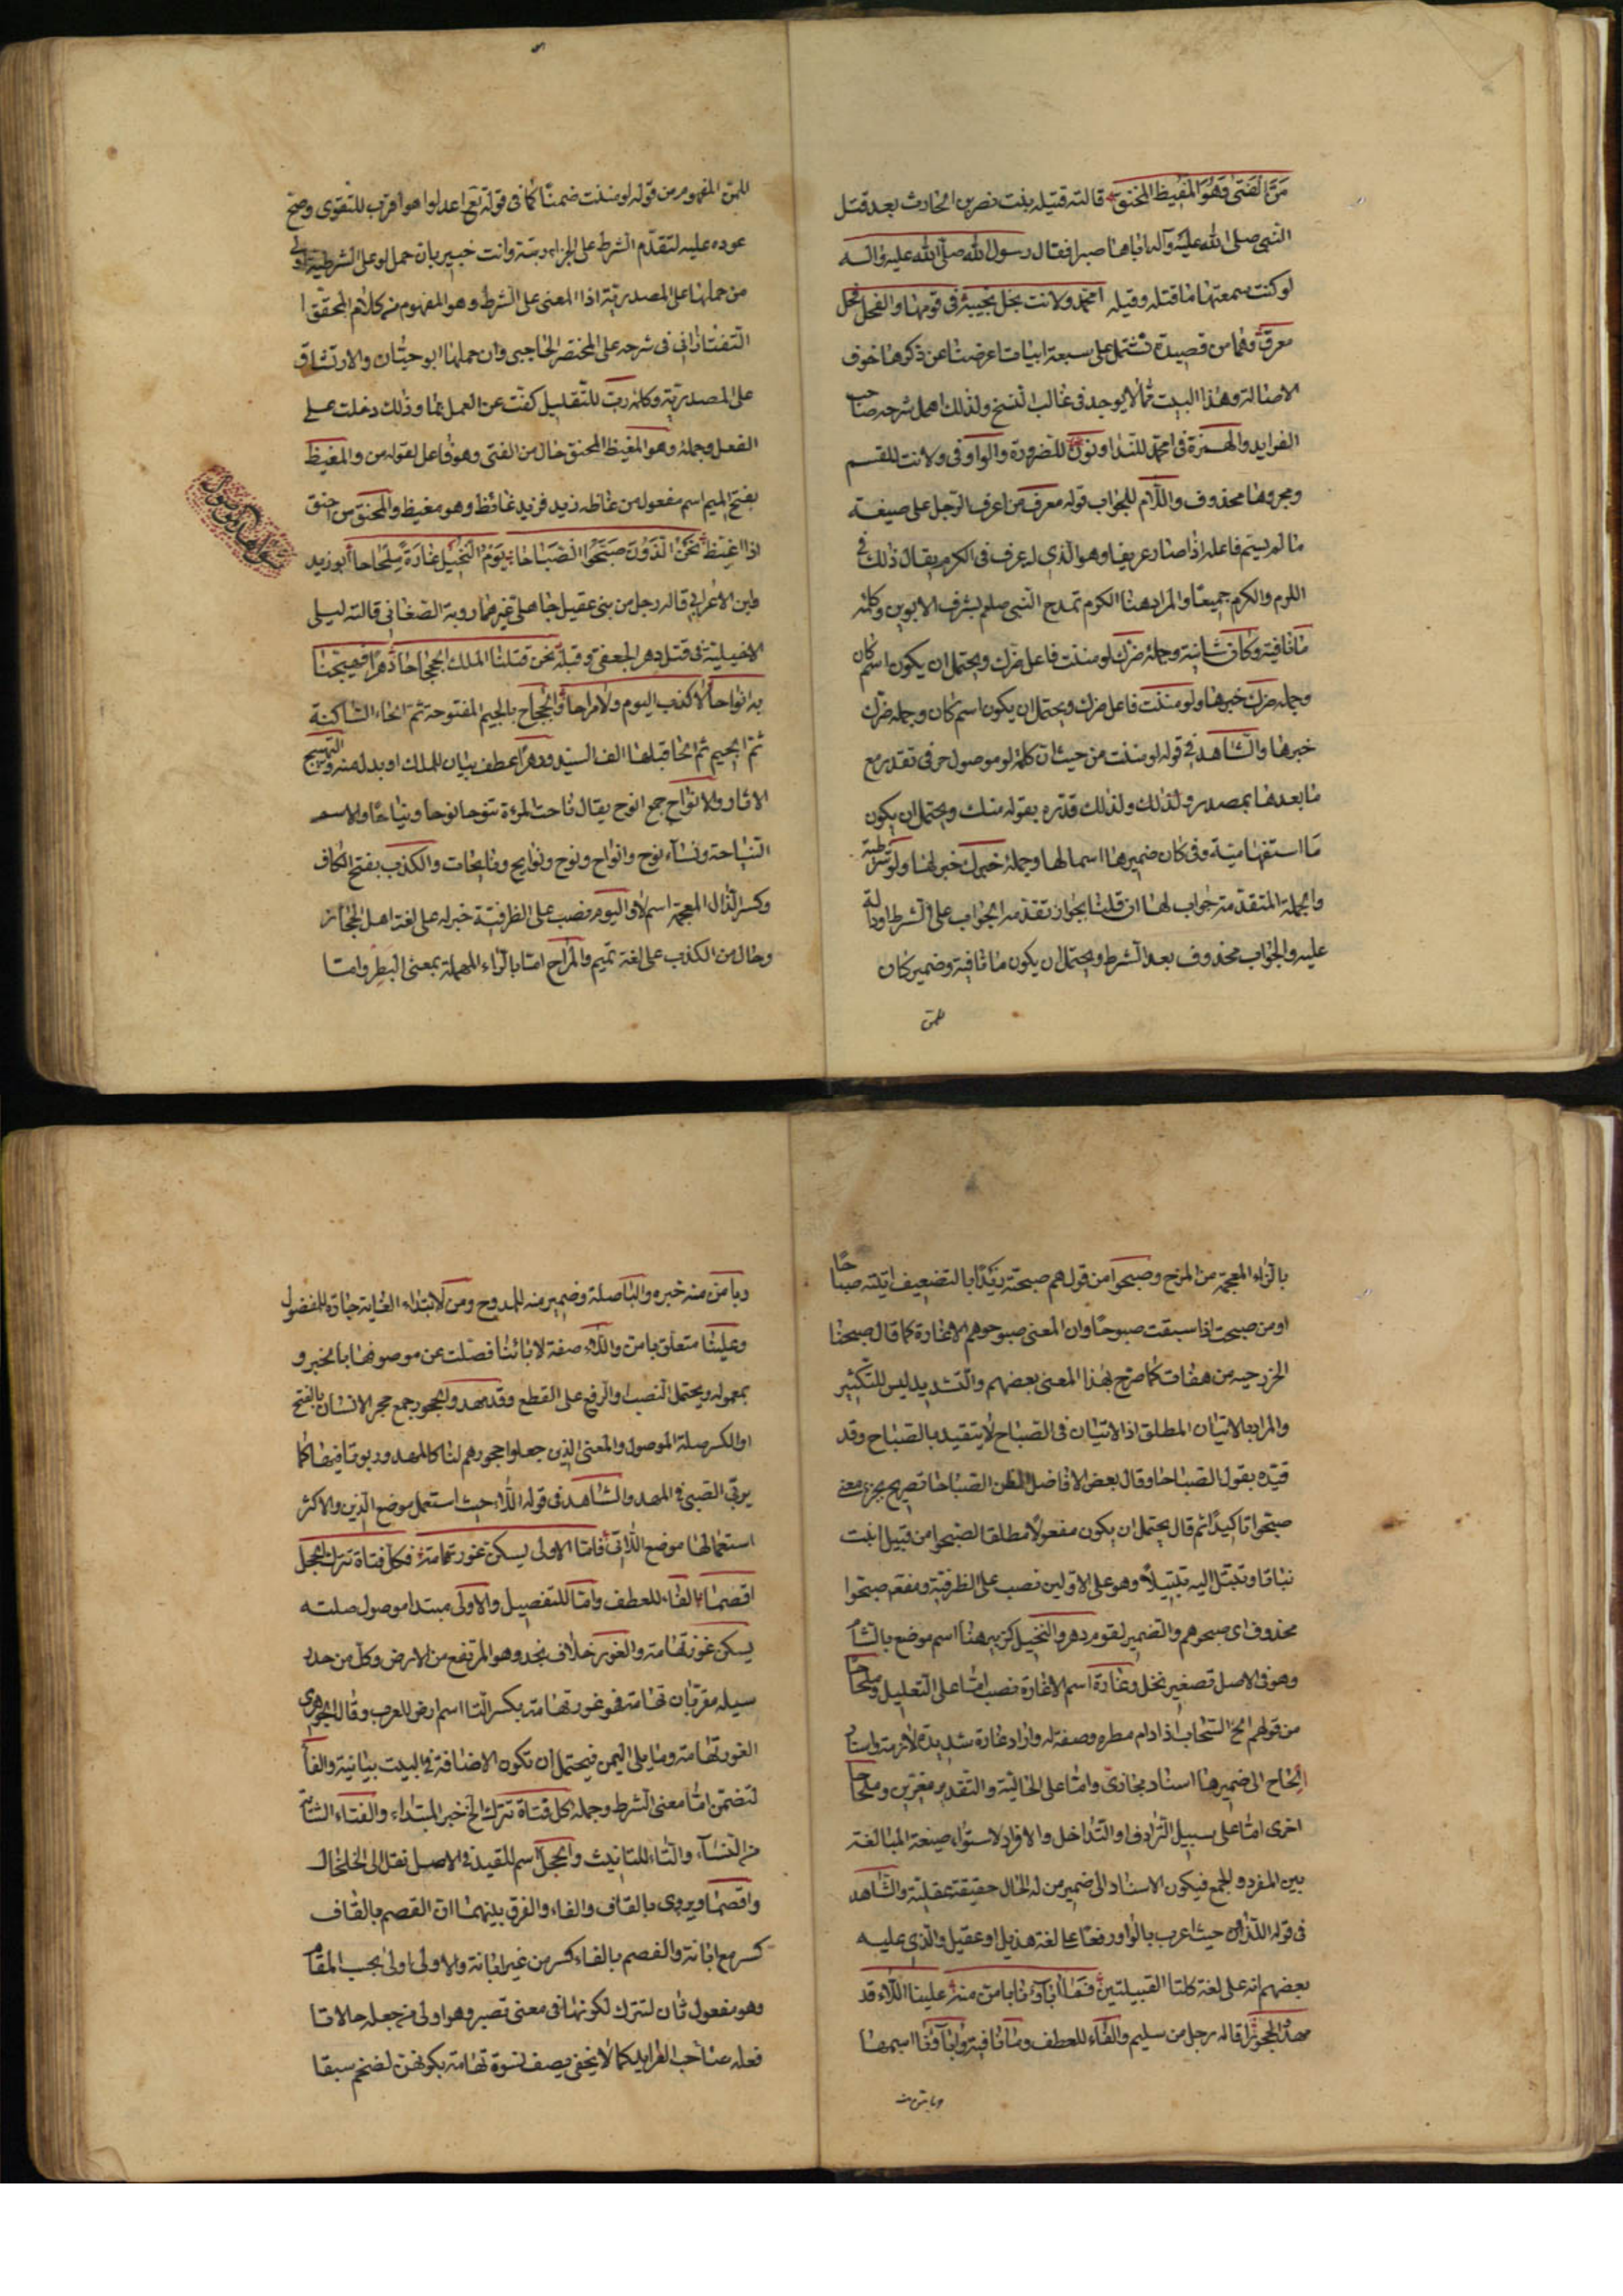 مَنَّ الْفَتىٰ وَهُوَ الْمَغِيظُ الْمُحْنَق قالته قتيله بنت نضر بن الحارث بعد قتل
النبي صلى الله عليه وآله اباها صبرا فقال رسول الله صلى الله عليه وآله
لو كنت سمعتها ما قتله وقيله امحمد ولانت نجل نجيبة فى قومها والفحل فحل
معرق وهما من قصيدة تشتمل على سبعة ابيات اعرضنا عن ذكرها خوف
الاطالة وهذا البيت مما لا يوجد فى غالب النسخ ولذلك اهمل شرحه صاحب
الفرايد والهمزة فى امحمد للنداء ونون للضرورة والواو فى ولانت للقسم
ومجروها محذوف واللام للجواب قوله معرق من اعرق الرجل على صيغة
ما لم يسم فاعله اذا صار عريقا وهو الذى له عرق فى الكرم يقال ذلك فى
اللوم والكرم جميعا والمراد هنا الكرم تمدح النبى صلعم بشرف الابوين وكلمة
ما نافية وكان شانية وجملة ضرك لو مننت فاعل ضرك ويحتمل ان يكون اسم كان
وجملة ضرك خبرها ولو مننت فاعل ضرك ويحتمل ان يكون اسم كان وجملة ضرك
خبرها والشاهد فى قوله لو مننت من حيث ان كلمة لو موصول حرفى تقدر مع
ما بعدها بمصدر ولذلك ولذلك قدره بقوله منك ويحتمل ان يكون
ما استفهامية وفى كان ضميرها اسما لها وجملة ضرك خبر لها ولو شرطية
والجملة المتقدمة جواب لها ان قلنا بجواز تقدمه الجواب على الشرط او دالة
عليه والجواب محذوف بعد الشرط ويحتمل ان يكون ما نافية وضمير كان
للمن
للمن المفهوم من قوله لو مننت ضمنا كما فى قوله تع اعدلوا هو اقرب للتقوى وصح
عوده عليه لتقدم الشرط على الجزاء رتبة وانت خبير بان حمل لو على الشرطية اولى
من حملها على المصدرية اذا المعنى على الشرط وهو المفهوم من كلام المحقق
التفتازانى فى شرحه على المختصر الحاجبى وان حملها ابو حيان والارتشاف
على المصدرية وكلمة رب للتقليل كفت عن العمل بما ولذلك دخلت على
الفعل وجملة وهو المغيظ المحنق حال من الفتى وهو فاعل لقوله من والمغيظ
بفتح الميم اسم مفعول من غاظه زيد فزيد غائظ وهو مغيظ والمحنق من حنق
اذا اغيظ نَحْنُ الَّذَوُنَ صَبَّحُوا الصَّبَاحَا يَوْمَ النُّخَيْلِ غَارَةً مِلْحَاحا ابو زيد
وابن الاعرابى قاله رجل من بنى عقيل جاهلى غيرهما روبة الصغانى قالته ليلى
الاخيلية فى قتل دهر الجعفى وقبله نحن قتلنا الملك الجحجاحا دهرا فهيجنا
به انواحا لا كذب اليوم ولا مراحا والجحجاح بالجيم المفتوحة ثم الحاء الساكنة
ثم الجيم ثم الحا قبلها الف السيد ودهرا عطف بيان للملك او بدل منه والتهييج
الاثار والانواح جمع النوح يقال ناحت المرءة تنوحا نوحا ونياحا والاسم
النياحة ونساء نوح وانواح ونوح ونوايح ونايحات والكذب بفتح الكاف
وكسر الذال المعجمة اسم لا واليوم نصب على الظرفية خبر له على لغة اهل الحجاز
وحال من الكذب على لغة تميم والمراح اما بالراء المهملة بمعنى البطر واما
بالزاء المعجمة من المزح وصبحوا من قولهم صبحته زيدا بالتضعيف اتيته صباحا
او من صبحت اذا سبقت صبوحا وان المعنى صبوحوهم الاغارة كما قال صبحنا
الخزرجيه من هفات كما صرح بهذا المعنى بعضهم والتشديد ليس للتكثير
والمراد بالاتيان المطلق اذ الاتيان فى الصباح لا يتقيد بالصباح وقد
قيده بقول الصباحا وقال بعض الافاضل الصباحا تصريح بجزء معنى
صبحوا تاكيدا ثم قال يحتمل ان يكون مفعولا مطلقا لصبحوا من قبيل انبت
نباتا وتبتل اليه تبتيلا وهو على الاولين نصب على الظرفية ومفعم صبحوا
محذوف اى صبحوهم والضمير لقوم دهر والنخيل كزبير هنا اسم موضع بالشام
وهو فى الاصل تصغير نخل وغارة اسم الاغارة نصب اما على التعليل وملحاحا
من قولهم الح السحاب اذا دام مطره وصفة له واراد غارة شديدة لازمة واسناد
الحاح الى ضميرها اسناد مجازى واما على الحالية والتقدير مغيرين وملحاحا
اخرى اما على سبيل الترادف او التداخل والافراد لاستواء صيغة المبالغة
بين المفرد والجمع فيكون الاسناد الى ضمير من له الحال حقيقة عقلية والشاهد
فى قوله اللذون حيث اعرب بالواو رفعا على لغة هذيل او عقيل والذى عليه
بعضهم انه على لغة كلتا القبيلتين فما اباؤنا بامن منه علينا اللاء قد
مهدوا الحجورا قاله رجل من سليم والفاء للعطف وما نافية واباؤنا اسمها
وبامن منه
وبامن منه خبره والبا صلة وضمير منه للممدوح ومن لابتداء الغاية جارة للمفضول
وعلينا متعلق بامن واللاء صفة لابائنا فصلت عن موصوفها بالخبر و
بمعموله ويحتمل النصب والرفع على القطع وقد مهد والحجور جمع حجر الانسان بالفتح
او الكسر صلة الموصول والمعنى الذين جعلوا حجورهم لنا كالمهد وربونا فيها كما
يربى الصبى فى المهد والشاهد فى قوله اللاء حيث استعمل موضع الذين والاكثر
استعمالها موضع اللاتى فاما الاولى يسكن غور تهامة فكل فتاة تترك الحجل
اقصما الفاء للعطف واما للتفصيل والاولى مبتدا موصول صلته
يسكن غور تهامة والغور خلاف نجد وهو المرتفع من الارض وكل من حدد
سيله مغربان تهامة فهو غور تهامة بكسر التا اسم ارض للعرب وقال الجوهرى
الغور تهامة وما يلى اليمن فيحتمل ان تكون الاضافة فى البيت بيانية والفأ
لتضمن اما معنى الشرط وجملة كل فتاة تترك الخ خبر المبتداء والفتاء الشابة
من النساء والتاء للتانيث والحجل اسم للقيد فى الاصل نقل الى الخلخال
واقصما ويروى بالقاف والفاء والفرق بينهما ان القصم بالقاف
كسر مع ابانة والفصم بالفاء كسر من غير ابانة والاولى اولى بحسب المقام
وهو مفعول ثان لتترك لكونها فى معنى تصير وهو اولى من جعله حالا كما
فعله صاحب الفرايد كما لا يخفى يصف نسوة تهامة بكونهن لضخم سبقا